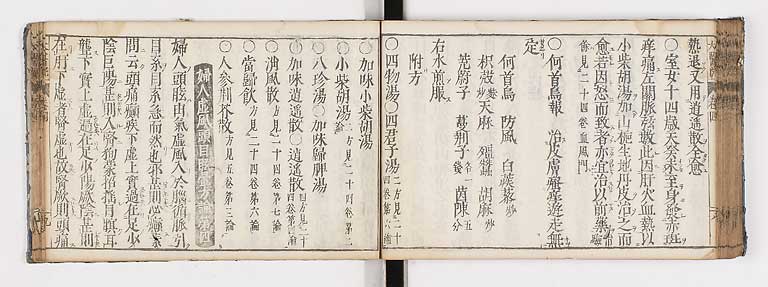 熱退又用逍遥散全愈
○室女十四歳天癸未至身發赤斑
痒痛左關脈弦數此因肝火血熱以
小柴胡湯加山梔生地丹皮治之而
愈若因怒而致者亦宜治以前藥
方見二十四卷血風門
○何首烏散 治皮膚瘙痒遊走無
定
何首烏 防風 白蒺藜炒
枳殻炒 天麻 殭蠶 胡麻炒
荒蔚子 蔓荆子各一錢 茵陳五分
右水煎服
附方
○四物湯○四君子湯二方見二十四卷第六論
○加味小柴胡湯
○小柴胡湯方見二十四卷第二論
○八珍湯○加味歸脾湯
○加味逍遥散○逍遥散四方見二十四卷第七論
○消風散方見二十四卷第七論
○當歸飲方見二十四卷第六論
○人參荆芥散方見五卷第三論
婦人虚風頭目眩暈方論第四
婦人頭眩由氣虚風入於腦循脈引
目系目系急而然也邪甚則心癲
問云頭痛癲疾下虚上實過在足少
陰巨陽甚則入腎徇蒙招搖目瞑耳
聾下實上虚過在足少陽厥陰甚則
在肝下虚者腎虚也故腎厥則頭痛